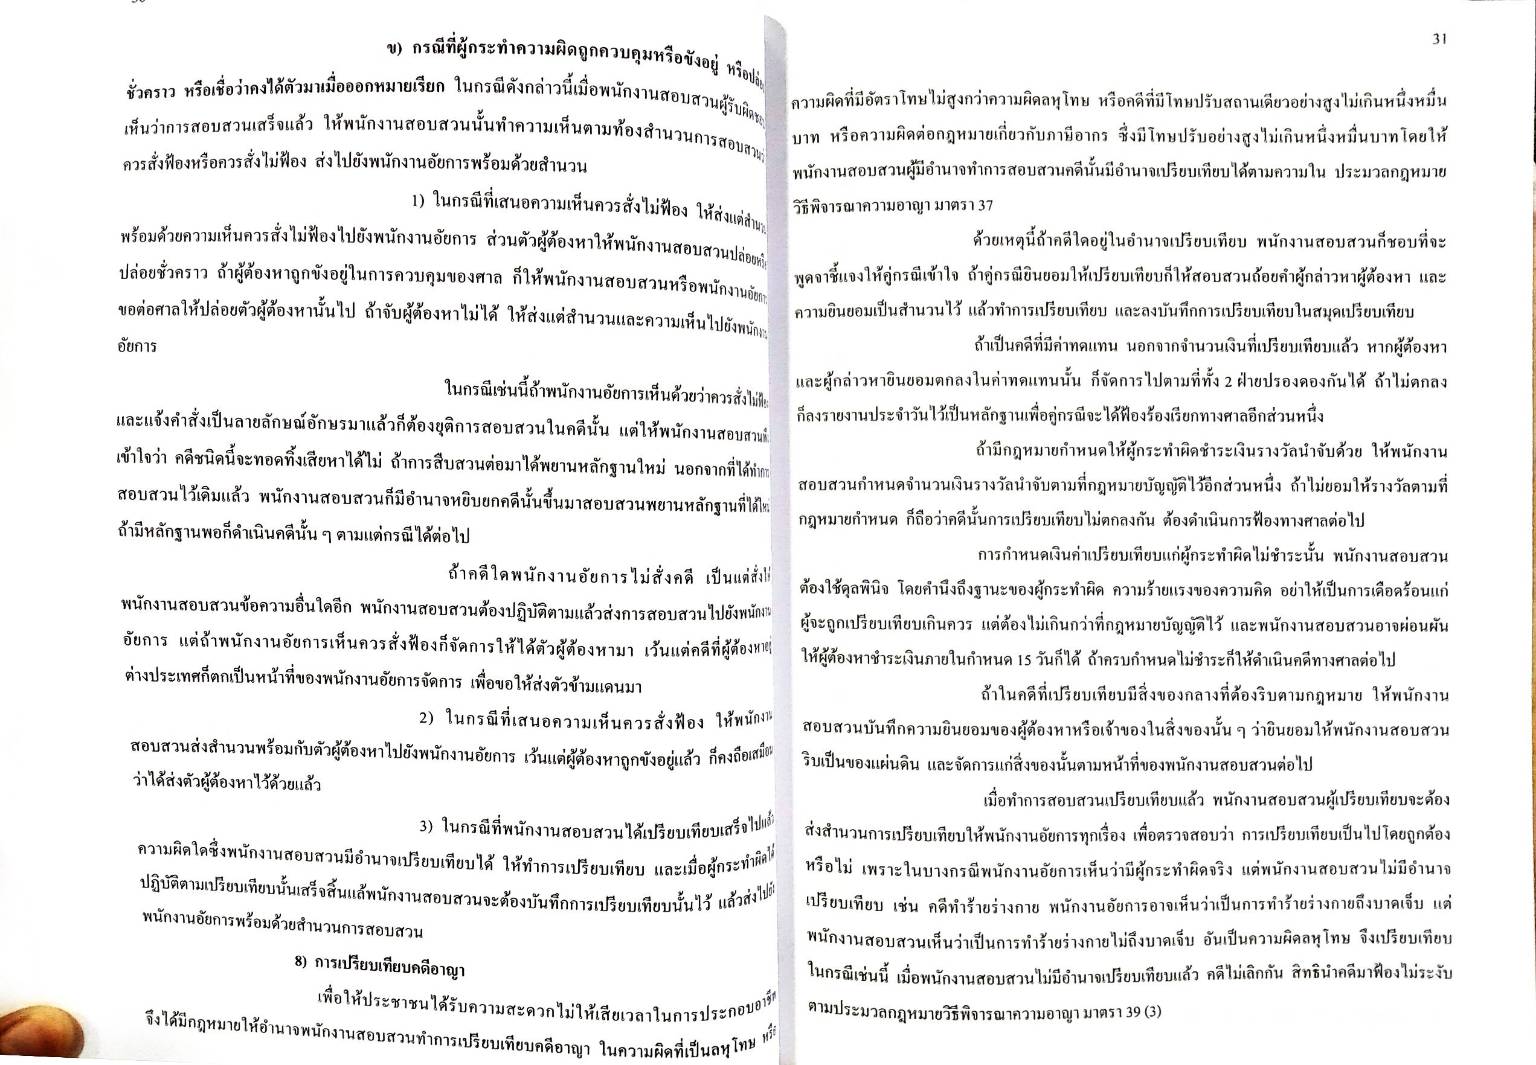 ข) กรณีที่ผู้กระทำความผิดถูกควบคุมหรือขังอยู่ หรือปล่อย
ชั่วคราว หรือเชื่อว่าคงได้ตัวมาเมื่อออกหมายเรียก ในกรณีดังกล่าวนี้เมื่อพนักงานสอบสวนผู้รับผิดชอบ
เห็นว่าการสอบสวนเสร็จแล้ว ให้พนักงานสอบสวนนั้นทำความเห็นตามท้องสำนวนการสอบสวนว่า
ควรสั่งฟ้องหรือควรสั่งไม่ฟ้อง ส่งไปยังพนักงานอัยการพร้อมด้วยสำนวน
1) ในกรณีที่เสนอความเห็นควรสั่งไม่ฟ้อง ให้ส่งแต่สำนวน
พร้อมด้วยความเห็นควรสั่งไม่ฟ้องไปยังพนักงานอัยการ ส่วนตัวผู้ต้องหาให้พนักงานสอบสวนปล่อยหรือ
ปล่อยชั่วคราว ถ้าผู้ต้องหาถูกขังอยู่ในการควบคุมของศาล ก็ให้พนักงานสอบสวนหรือพนักงานอัยการ
ขอต่อศาลให้ปล่อยตัวผู้ต้องหานั้นไป ถ้าจับผู้ต้องหาไม่ได้ ให้ส่งแต่สำนวนและความเห็นไปยังพนักงาน
อัยการ
ในกรณีเช่นนี้ถ้าพนักงานอัยการเห็นด้วยว่าควรสั่งไม่ฟ้อง
และแจ้งคำสั่งเป็นลายลักษณ์อักษรมาแล้วก็ต้องยุติการสอบสวนในคดีนั้น แต่ให้พนักงานสอบสวน
เข้าใจว่า คดีชนิดนี้จะทอดทิ้งเสียหาได้ไม่ ถ้าการสืบสวนต่อมาได้พยานหลักฐานใหม่ นอกจากที่ได้ทำการ
สอบสวนไว้เดิมแล้ว พนักงานสอบสวนก็มีอำนาจหยิบยกคดีนั้นขึ้นมาสอบสวนพยานหลักฐานที่ได้ใหม่
ถ้ามีหลักฐานพอก็ดำเนินคดีนั้น ๆ ตามแต่กรณีได้ต่อไป
ถ้าคดีใดพนักงานอัยการไม่สั่งคดี เป็นแต่สั่งให้
พนักงานสอบสวนข้อความอื่นใดอีก พนักงานสอบสวนต้องปฏิบัติตามแล้วส่งการสอบสวนไปยังพนักงาน
อัยการ แต่ถ้าพนักงานอัยการเห็นควรสั่งฟ้องก็จัดการให้ได้ตัวผู้ต้องหามา เว้นแต่คดีที่ผู้ต้องหาอยู่
ต่างประเทศก็ตกเป็นหน้าที่ของพนักงานอัยการจัดการ เพื่อขอให้ส่งตัวข้ามแดนมา
2) ในกรณีที่เสนอความเห็นควรสั่งฟ้อง ให้พนักงาน
สอบสวนส่งสำนวนพร้อมกับตัวผู้ต้องหาไปยังพนักงานอัยการ เว้นแต่ผู้ต้องหาถูกขังอยู่แล้ว ก็คงถือเสมือน
ว่าได้ส่งตัวผู้ต้องหาไว้ด้วยแล้ว
3) ในกรณีที่พนักงานสอบสวนได้เปรียบเทียบเสร็จไปแล้ว
ความผิดใดซึ่งพนักงานสอบสวนมีอำนาจเปรียบเทียบได้ ให้ทำการเปรียบเทียบ และเมื่อผู้กระทำผิดได้
ปฏิบัติตามเปรียบเทียบนั้นเสร็จสิ้นแล้พนักงานสอบสวนจะต้องบันทึกการเปรียบเทียบนั้นไว้ แล้วส่งไปยัง
พนักงานอัยการพร้อมด้วยสำนวนการสอบสวน
8) การเปรียบเทียบคดีอาญา
เพื่อให้ประชาชนได้รับความสะดวกไม่ให้เสียเวลาในการประกอบอาชีพ
จึงได้มีกฎหมายให้อำนาจพนักงานสอบสวนทำการเปรียบเทียบคดีอาญา ในความผิดที่เป็นลหุโทษ หรือ
31
ความผิดที่มีอัตราโทษไม่สูงกว่าความผิดลหุโทษ หรือคดีที่มีโทษปรับสถานเดียวอย่างสูงไม่เกินหนึ่งหมื่น
บาท หรือความผิดต่อกฎหมายเกี่ยวกับภาษีอากร ซึ่งมีโทษปรับอย่างสูงไม่เกินหนึ่งหมื่นบาทโดยให้
พนักงานสอบสวนผู้มีอำนาจทำการสอบสวนคดีนั้นมีอำนาจเปรียบเทียบได้ตามความใน ประมวลกฎหมาย
วิธีพิจารณาความอาญา มาตรา 37
ด้วยเหตุนี้ถ้าคดีใดอยู่ในอำนาจเปรียบเทียบ พนักงานสอบสวนก็ชอบที่จะ
พูดจาชี้แจงให้คู่กรณีเข้าใจ ถ้าคู่กรณียินยอมให้เปรียบเทียบก็ให้สอบสวนถ้อยคำผู้กล่าวหาผู้ต้องหา และ
ความยินยอมเป็นสำนวนไว้ แล้วทำการเปรียบเทียบ และลงบันทึกการเปรียบเทียบในสมุดเปรียบเทียบ
ถ้าเป็นคดีที่มีค่าทดแทน นอกจากจำนวนเงินที่เปรียบเทียบแล้ว หากผู้ต้องหา
และผู้กล่าวหายินยอมตกลงในค่าทดแทนนั้น ก็จัดการไปตามที่ทั้ง 2 ฝ่ายปรองดองกันได้ ถ้าไม่ตกลง
ก็ลงรายงานประจำวันไว้เป็นหลักฐานเพื่อคู่กรณีจะได้ฟ้องร้องเรียกทางศาลอีกส่วนหนึ่ง
ถ้ามีกฎหมายกำหนดให้ผู้กระทำผิดชำระเงินรางวัลนำจับด้วย ให้พนักงาน
สอบสวนกำหนดจำนวนเงินรางวัลนำจับตามที่กฎหมายบัญญัติไว้อีกส่วนหนึ่ง ถ้าไม่ยอมให้รางวัลตามที่
กฎหมายกำหนด ก็ถือว่าคดีนั้นการเปรียบเทียบไม่ตกลงกัน ต้องดำเนินการฟ้องทางศาลต่อไป
การกำหนดเงินค่าเปรียบเทียบแก่ผู้กระทำผิดไม่ชำระนั้น พนักงานสอบสวน
ต้องใช้ดุลพินิจ โดยคำนึงถึงฐานะของผู้กระทำผิด ความร้ายแรงของความคิด อย่าให้เป็นการเดือดร้อนแก่
ผู้จะถูกเปรียบเทียบเกินควร แต่ต้องไม่เกินกว่าที่กฎหมายบัญญัติไว้ และพนักงานสอบสวนอาจผ่อนผัน
ให้ผู้ต้องหาชำระเงินภายในกำหนด 15 วันก็ได้ ถ้าครบกำหนดไม่ชำระก็ให้ดำเนินคดีทางศาลต่อไป
ถ้าในคดีที่เปรียบเทียบมีสิ่งของกลางที่ต้องริบตามกฎหมาย ให้พนักงาน
สอบสวนบันทึกความยินยอมของผู้ต้องหาหรือเจ้าของในสิ่งของนั้น ๆ ว่ายินยอมให้พนักงานสอบสวน
ริบเป็นของแผ่นดิน และจัดการแก่สิ่งของนั้นตามหน้าที่ของพนักงานสอบสวนต่อไป
เมื่อทำการสอบสวนเปรียบเทียบแล้ว พนักงานสอบสวนผู้เปรียบเทียบจะต้อง
ส่งสำนวนการเปรียบเทียบให้พนักงานอัยการทุกเรื่อง เพื่อตรวจสอบว่า การเปรียบเทียบเป็นไปโดยถูกต้อง
หรือไม่ เพราะในบางกรณีพนักงานอัยการเห็นว่ามีผู้กระทำผิดจริง แต่พนักงานสอบสวนไม่มีอำนาจ
เปรียบเทียบ เช่น คดีทำร้ายร่างกาย พนักงานอัยการอาจเห็นว่าเป็นการทำร้ายร่างกายถึงบาดเจ็บ แต่
พนักงานสอบสวนเห็นว่าเป็นการทำร้ายร่างกายไม่ถึงบาดเจ็บ อันเป็นความผิดลหุโทษ จึงเปรียบเทียบ
ในกรณีเช่นนี้ เมื่อพนักงานสอบสวนไม่มีอำนาจเปรียบเทียบแล้ว คดีไม่เลิกกัน สิทธินำคดีมาฟ้องไม่ระงับ
ตามประมวลกฎหมายวิธีพิจารณาความอาญา มาตรา 39 (3)